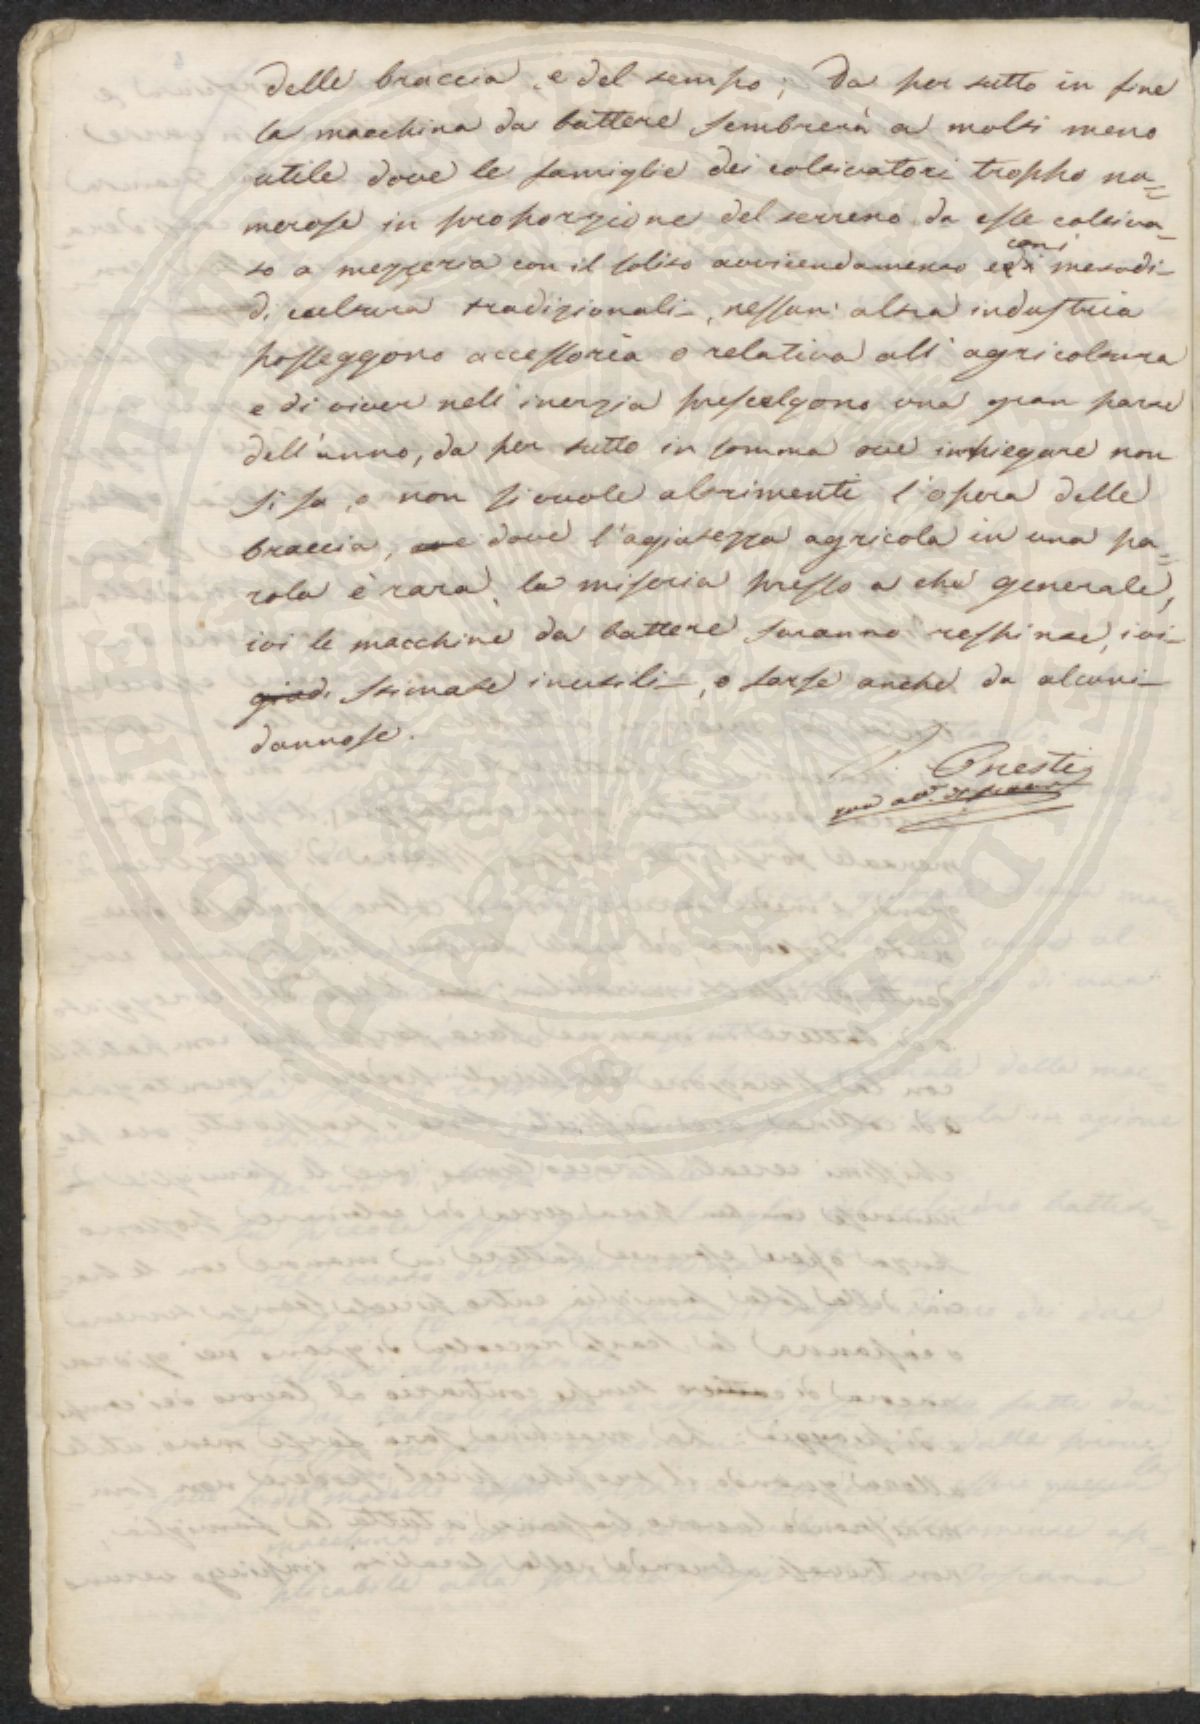 delle braccia, e del tempo; Da per tutto in fine
la macchina da battere sembrerà a molti meno
utile dove le famiglie dei coltivatori troppo nu=
merose in proporzione del terreno da esse coltiva-
to a mezzeria con il solito avvicendamento e coi metodi
di cultura tradizionali, nessun' altra industria
posseggono accessoria o relativa all' agricoltura
e di viver nell' inerzia prescelgono una gran parte
dell' anno, da per tutto in somma ove impiegare non
si sa, o non si vuole altrimenti l'opera delle
braccia, ove dove l'agiatezza agricola in una pa=
rola è rara, la miseria presso a che generale,
ivi le macchine da battere saranno respinte, ivi
stimate inutili, o forse anche da alcuni
dannose.
Onesti
PROSPERITATI PUBLICAE AUGENDAE